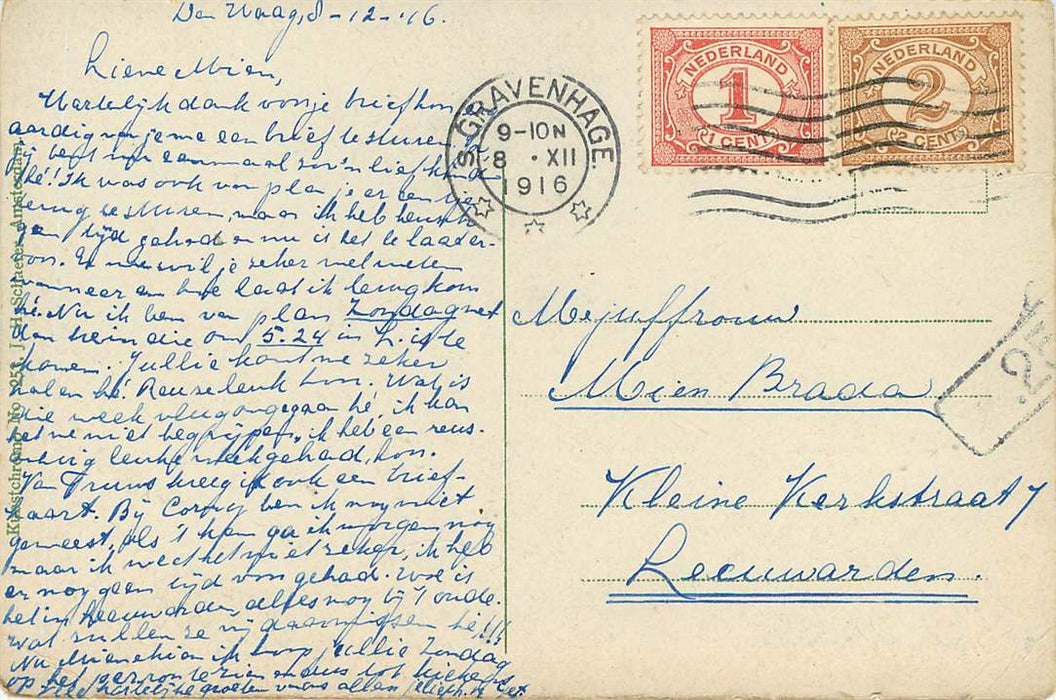 Den Haag, 8-12-'16.
Lieve Mien,
Hartelijk dank voor je briefkaart
aardig van je me een brief te sturen
jij bent nu eenmaal zoo'n lieft
hé! Ik was ook van plan je er een
terug te sturen, maar ik heb heusch
geen tijd gehad en nu is het te laat er-
voor. En nu wil je zeker wel weten
wanneer en hoe laat ik terug kom
hé. Nu ik ben van plan Zondag met
den trein die om 5.24 in L. is te
komen. Jullie komt me zeker
halen hé. Reuze leuk hoor. Wat is
die week vlug omgegaan hé, ik kan
het me niet begrijpen, ik heb een reus-
achtig leuke week gehad, hoor.
Van Truus kreeg ik ook een brief-
kaart. Bij Corry ben ik nog niet
geweest, als 't kan ga ik morgen nog
maar ik weet het niet zeker, ik heb
er nog geen tijd voor gehad. Hoe is
het in Leeuwarden, alles nog bij 't oude.
wat zullen ze mij daar missen hé,!!!
Nu Mienehien ik hoop jullie Zondag
op het perron te zien en dus tot kiekens
hartelijke groeten voor allen
Kunstchromo No. 251. J. H. Schaefer, Amsterdam.
'S GRAVENHAGE
9-10 N
8 · XII
1916
NEDERLAND
1
1 CENT
NEDERLAND
2
2 CENT
Mejuffrouw
Mien Brada
Kleine Kerkstraat 7
Leeuwarden.
25